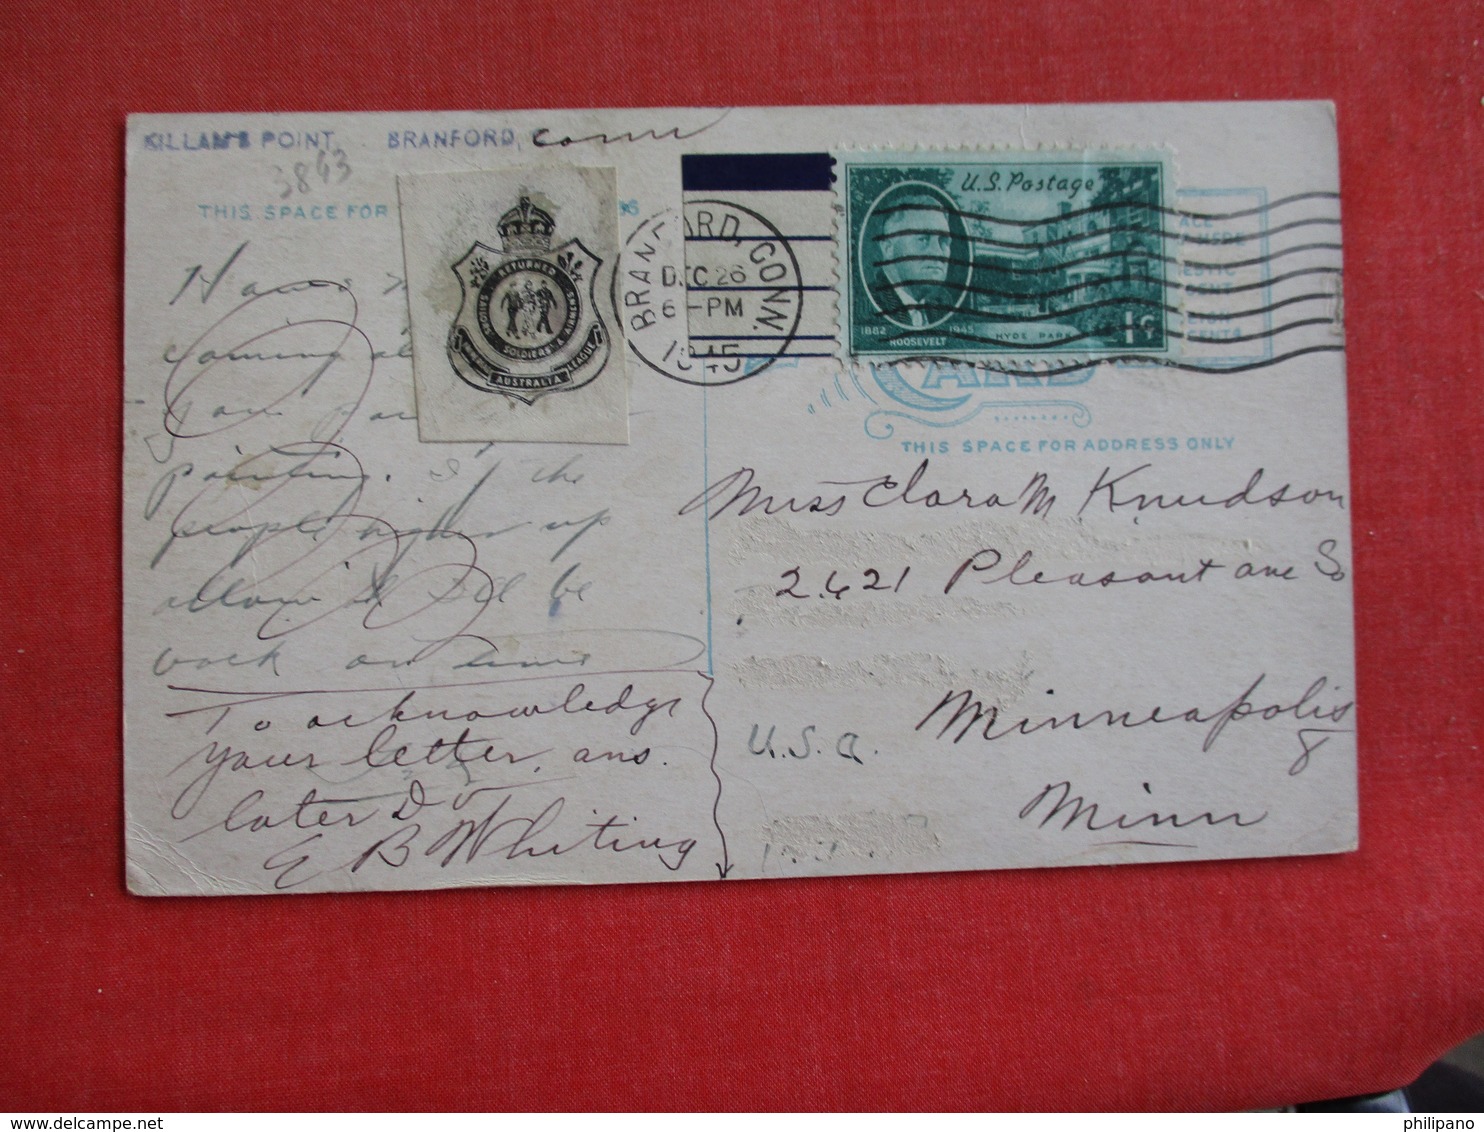 KILLAM'S POINT, BRANFORD, Conn
3843
THIS SPACE FOR
U.S. Postage
1882 1945
ROOSEVELT HYDE PARK 1¢
BRANFORD, CONN.
DEC 26
6-PM
1945
RETURNED
SAILORS
SOLDIERS
& AIRMEN'S
IMPERIAL
LEAGUE
AUSTRALIA
CARD
THIS SPACE FOR ADDRESS ONLY
coming
painting. If the
people higher up
allow it I'll be
back on time
To acknowledge
your letter, ans.
later D
E B Whiting
Miss Clara M Knudson
2621 Pleasant ave So
Minneapolis
8
U.S.A.
Minn
philipano